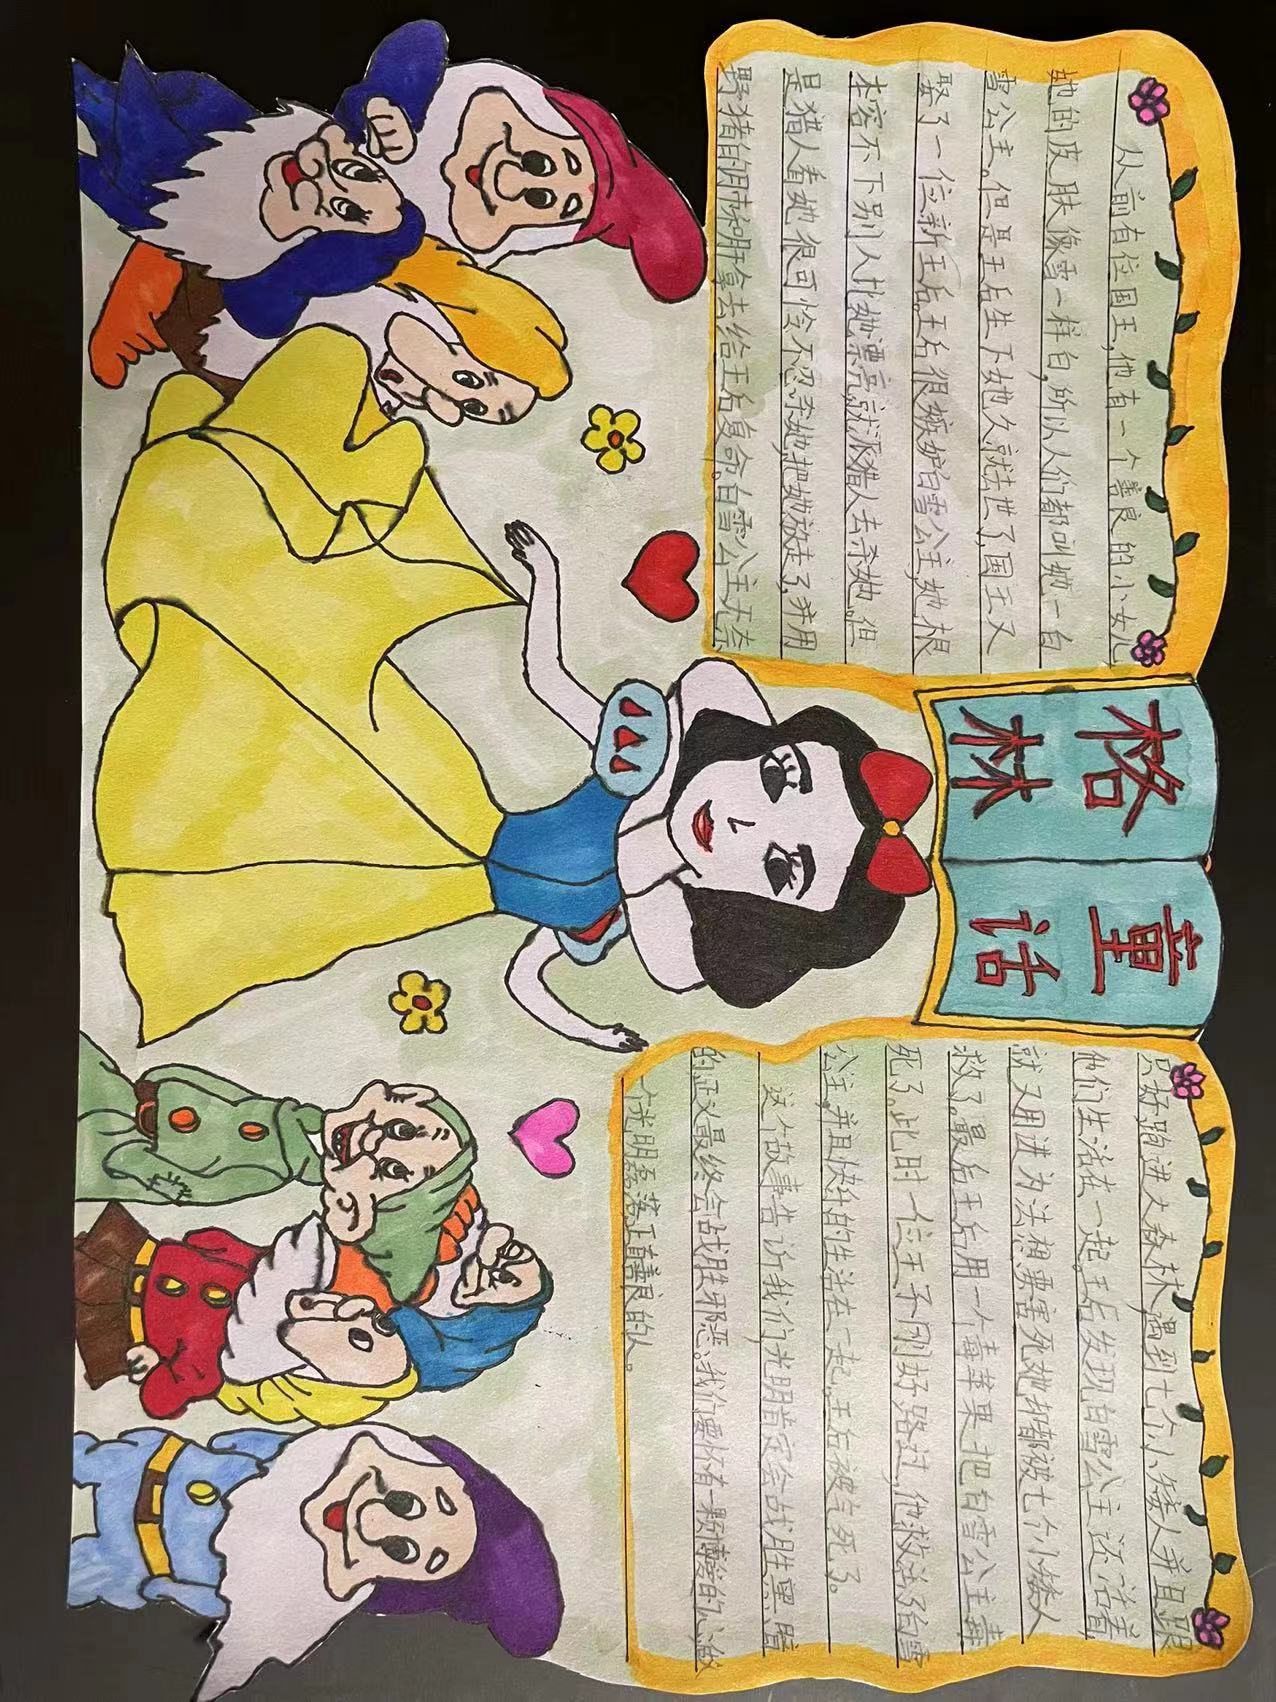 格林
童话
从前有位国王,他有一个善良的小女儿
她的皮肤像雪一样白,所以人们都叫她一白
雪公主。但是王后生下她久就去世了,国王又
娶了一位新王后。王后很嫉妒白雪公主,她根
本容不下别人比她漂亮,就派猎人去杀她。但
是猎人看她很可怜不忍杀她,把她放走了,并用
野猪的肺和肝拿去给王后复命。白雪公主无奈
只好跑进大森林,遇到七个小矮人并且跟
他们生活在一起,王后发现白雪公主还活着,
就又用进为法想要害死她都被七个小矮人
救了。最后王后用一个毒苹果把白雪公主毒
死了。此时一位王子刚好路过,他救活了白雪
公主,并且快乐的生活在一起,王后被气死了。
这个故事告诉我们光明肯定会战胜黑暗
的正义最终会战胜邪恶,我们要怀有一颗博爱的心做
个光明磊落正直善良的人。